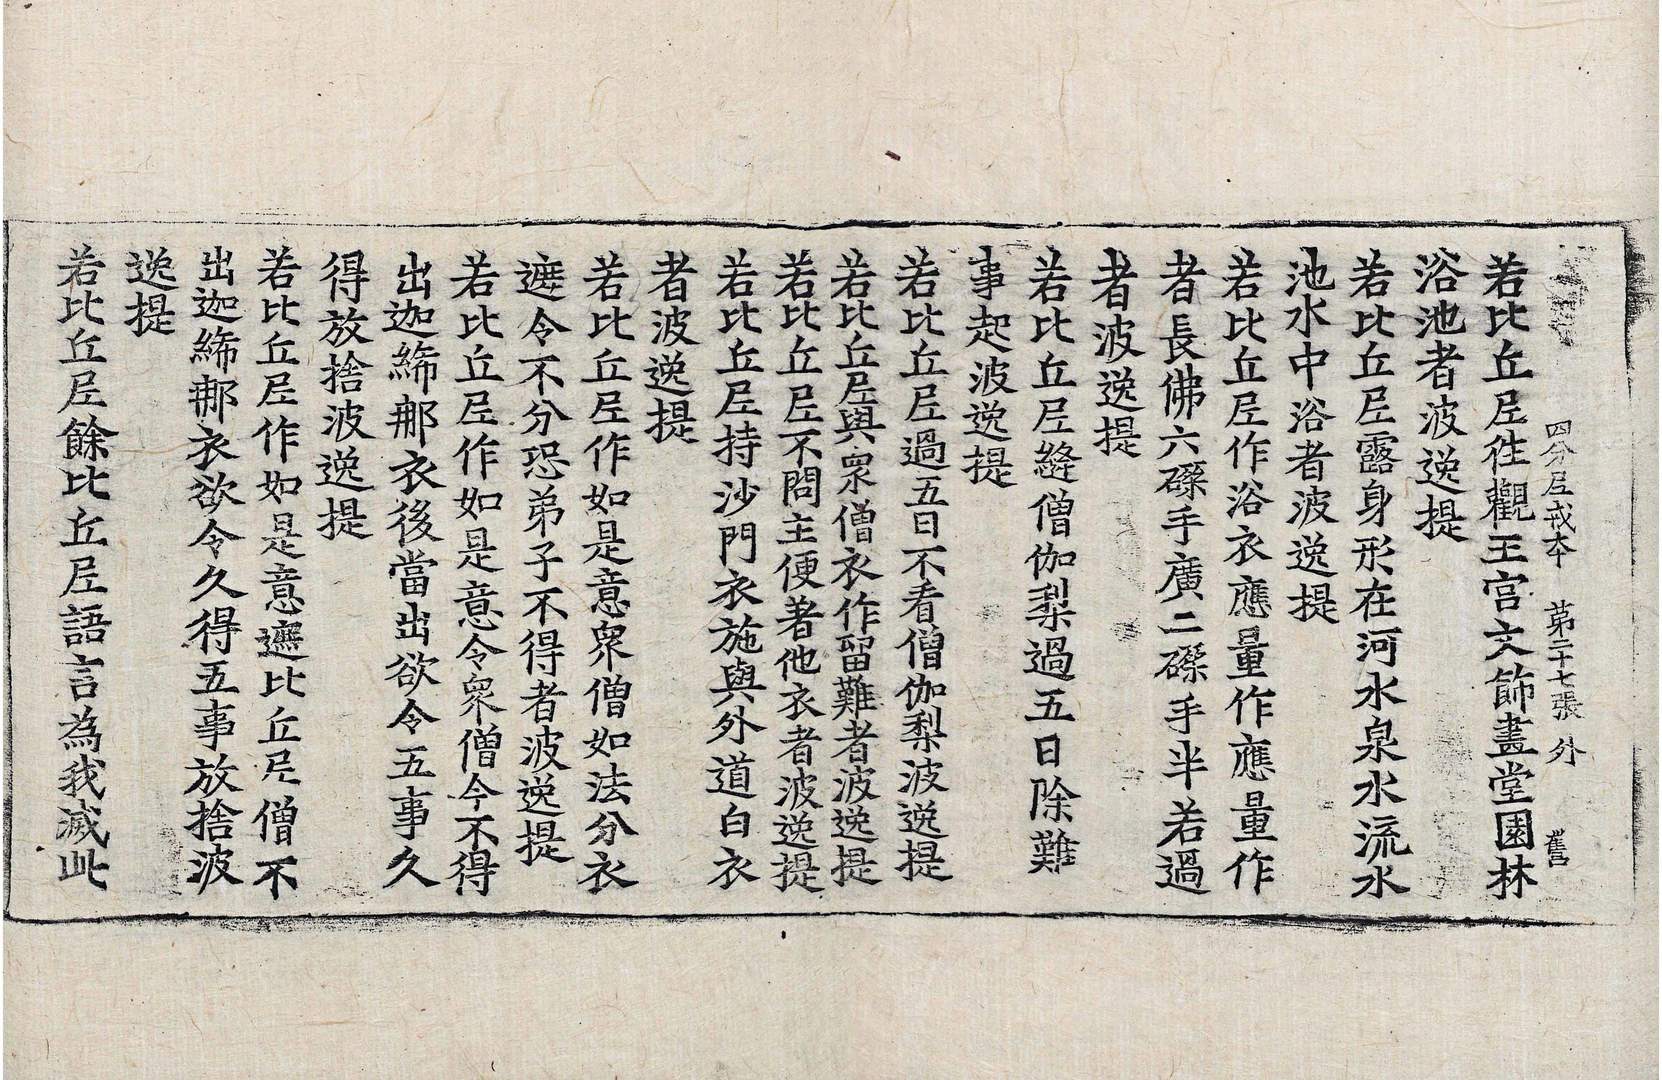 四分尼戒本 第二十七張 外 舊
若比丘尼往觀王宮文飾畫堂園林
浴池者波逸提
若比丘尼露身形在河水泉水流水
池水中浴者波逸提
若比丘尼作浴衣應量作應量作
者長佛六磔手廣二磔手半若過
者波逸提
若比丘尼縫僧伽梨過五日除難
事起波逸提
若比丘尼過五日不看僧伽梨波逸提
若比丘尼與衆僧衣作留難者波逸提
若比丘尼不問主便著他衣者波逸提
若比丘尼持沙門衣施與外道白衣
者波逸提
若比丘尼作如是意衆僧如法分衣
遮令不分恐弟子不得者波逸提
若比丘尼作如是意令衆僧今不得
出迦絺那衣後當出欲令五事久
得放捨波逸提
若比丘尼作如是意遮比丘尼僧不
出迦絺那衣欲令久得五事放捨波
逸提
若比丘尼餘比丘尼語言為我滅此